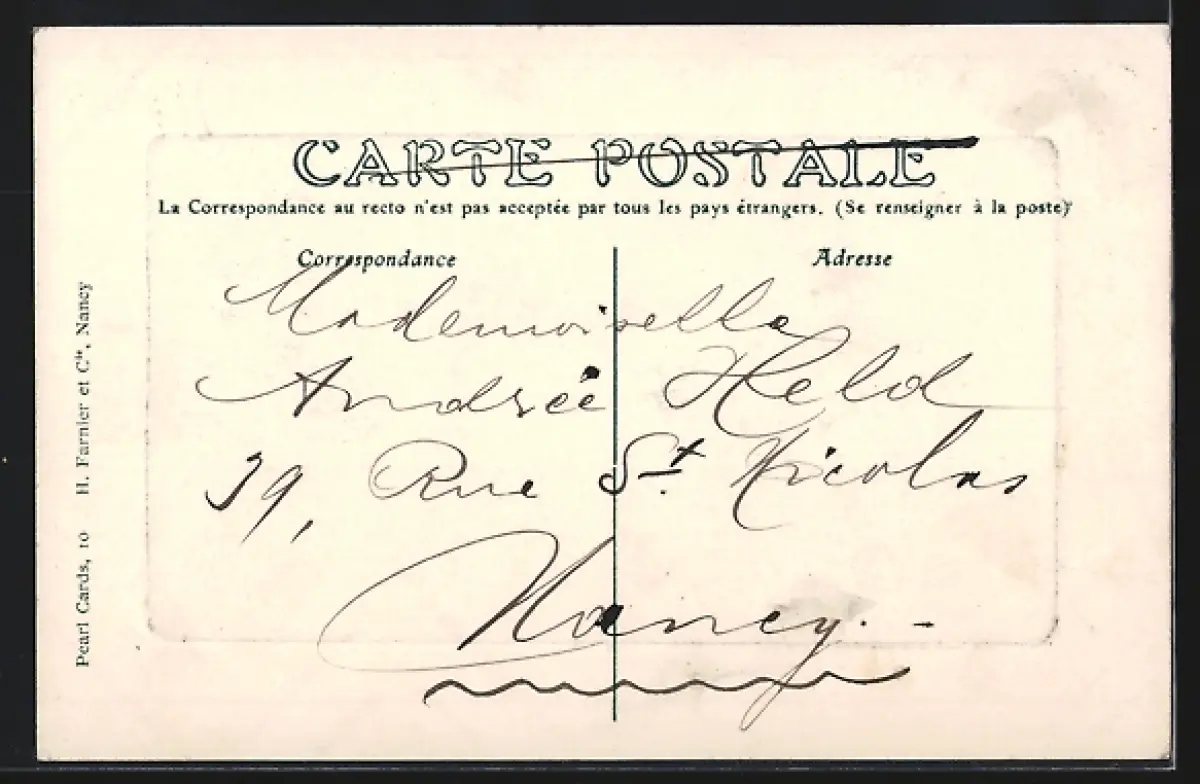 CARTE POSTALE
La Correspondance au recto n'est pas acceptée par tous les pays étrangers. (Se renseigner à la poste)
Correspondance
Adresse
Mademoiselle
Andrée Held
39, Rue St. Nicolas
Nancy. -
Pearl Cards, 10 H. Farnier et Cie, Nancy